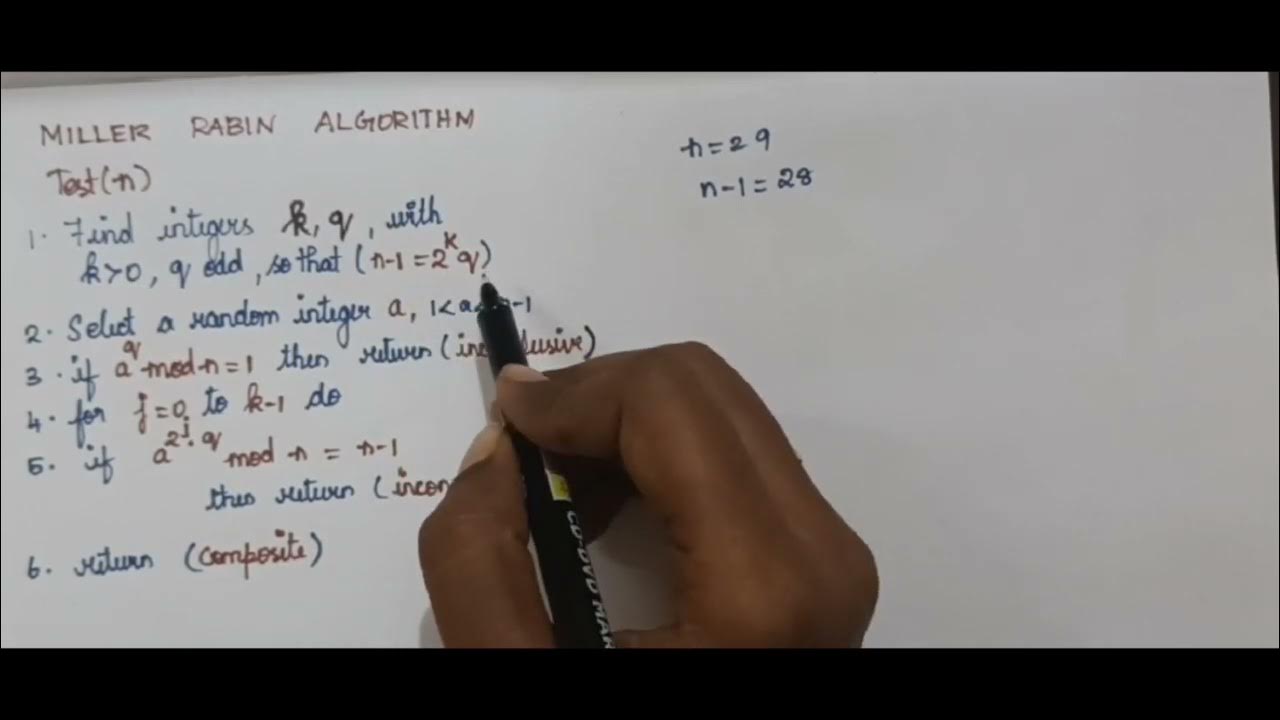 MILLER RABIN ALGORITHM
Test(n)
1. Find integers k, q, with
k>0, q odd, so that (n-1 = 2^k q)
2. Select a random integer a, 1<a< -1
3. if a^q mod n = 1 then return (
4. for j=0 to k-1 do
5. if a^2^j.q mod n = n-1
then return (
6. return (composite)
n = 29
n-1 = 28
CD-DVD